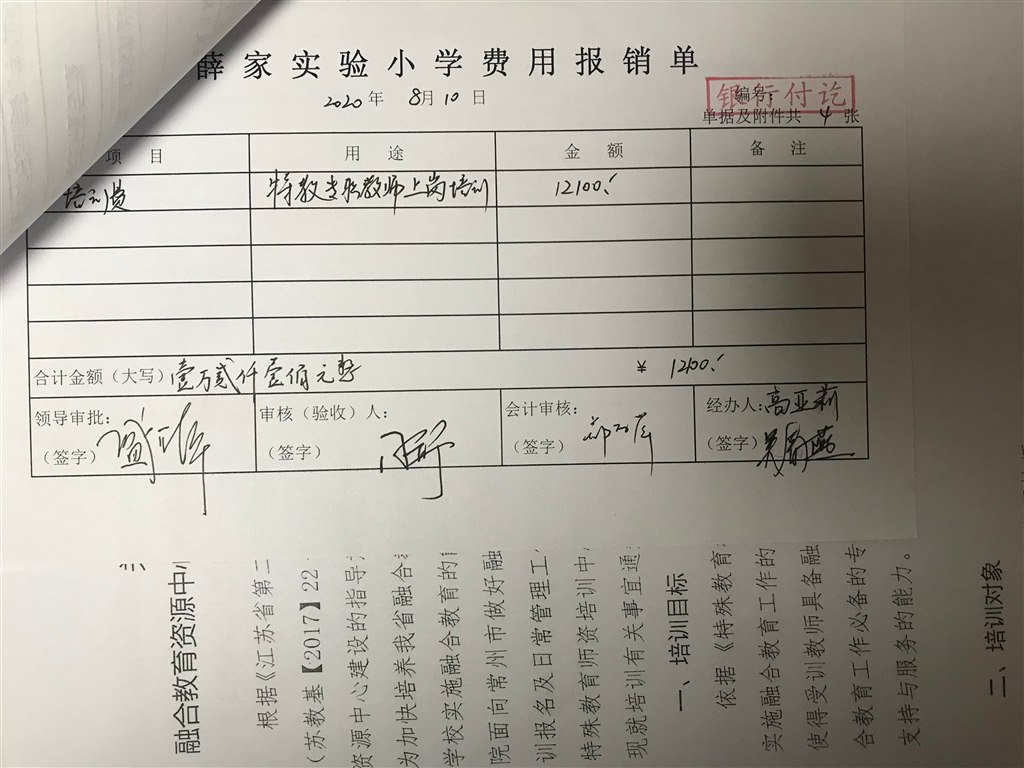 薛家实验小学费用报销单
2020年 8月10日
银行付讫
编号:
单据及附件共 4 张
项 目 用 途 金 额 备 注
培训费 特教专职教师上岗培训 12100.
合计金额（大写）壹万贰仟壹佰元整 ￥ 12100.
领导审批: 审核（验收）人: 会计审核: 经办人:高亚莉
（签字） （签字） （签字） （签字）
融合教育资源中
根据《江苏省第二
（苏教基【2017】22
资源中心建设的指导
为加快培养我省融合
学校实施融合教育的
院面向常州市做好融
训报名及日常管理工
特殊教育师资培训中
现就培训有关事宜通
一、培训目标
依据《特殊教育
实施融合教育工作的
使得受训教师具备融
合教育工作必备的专
支持与服务的能力。
二、培训对象